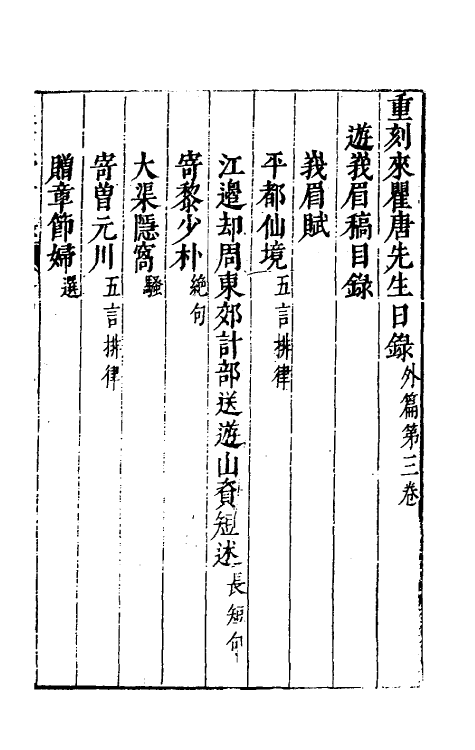 重刻來瞿唐先生日錄外篇第三卷
遊峩眉稿目錄
峩眉賦
平都仙境五言排律
江邊却周東郊計部送遊山資短述長短句
寄黎少朴絶句
大渠隱窩騷
寄曾元川五言排律
贈章節婦選